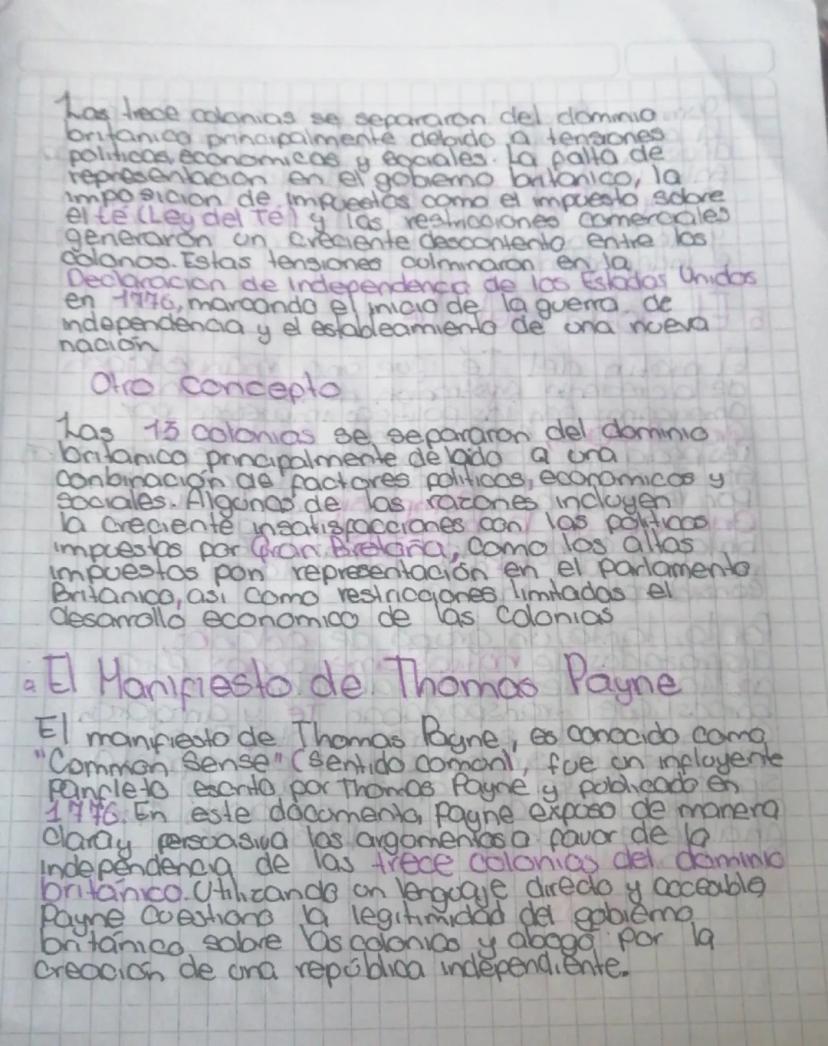 Las trece colonias se separaron del dominio
britanico principalmente debido a tensiones
politicas, economicas y sociales. La falta de
representacion en el gobierno britanico, la
imposicion de impuestos como el impuesto sobre
el té (Ley del Té) y las restricciones comerciales
generaron un creciente descontento entre los
colonos. Estas tensiones culminaron en la
Declaracion de Independenca de los Estados Unidos
en 1776, marcando el inicio de la guerra de
independencia y el estableamiento de una nueva
nación
Otro concepto
Las 13 colonias se separaron del dominio
britanico principalmente debido a una
conbinación de factores politicos, economicos y
sociales. Algunas de las razones incluyen
la creciente insatisfacciones con las politicas
impuestas por Gran Bretaña, como los altos
impuestos pon representación en el parlamento
Britanico, asi como restricciones limitadas el
desarrollo economico de las colonias
El Manifiesto de Thomas Payne
El manifiesto de Thomas Payne, es conocido como
"Common Sense" (sentido comun), fue un influyente
panfleto escrito por Thomas Payne y publicado en
1776. En este documento, Payne expuso de manera
clara y persuasiva los argumentos a favor de la
independencia de las trece colonias del dominio
británico. Utilizando un lenguaje directo y acceable
Payne cuestiono la legitimidad del gobierno
británico sobre las colonias y abogó por la
creación de una república independiente.